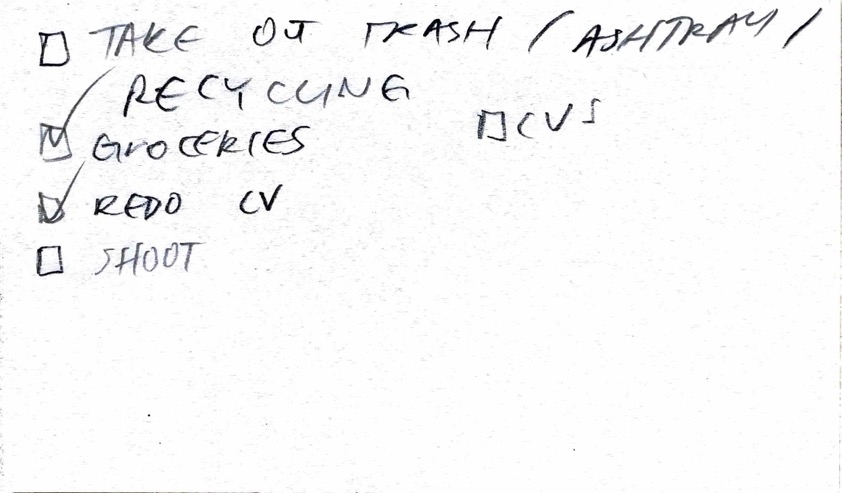 TAKE OUT TRASH / ASHTRAY /
RECYCLING
GROCERIES
CVS
REDO CV
SHOOT